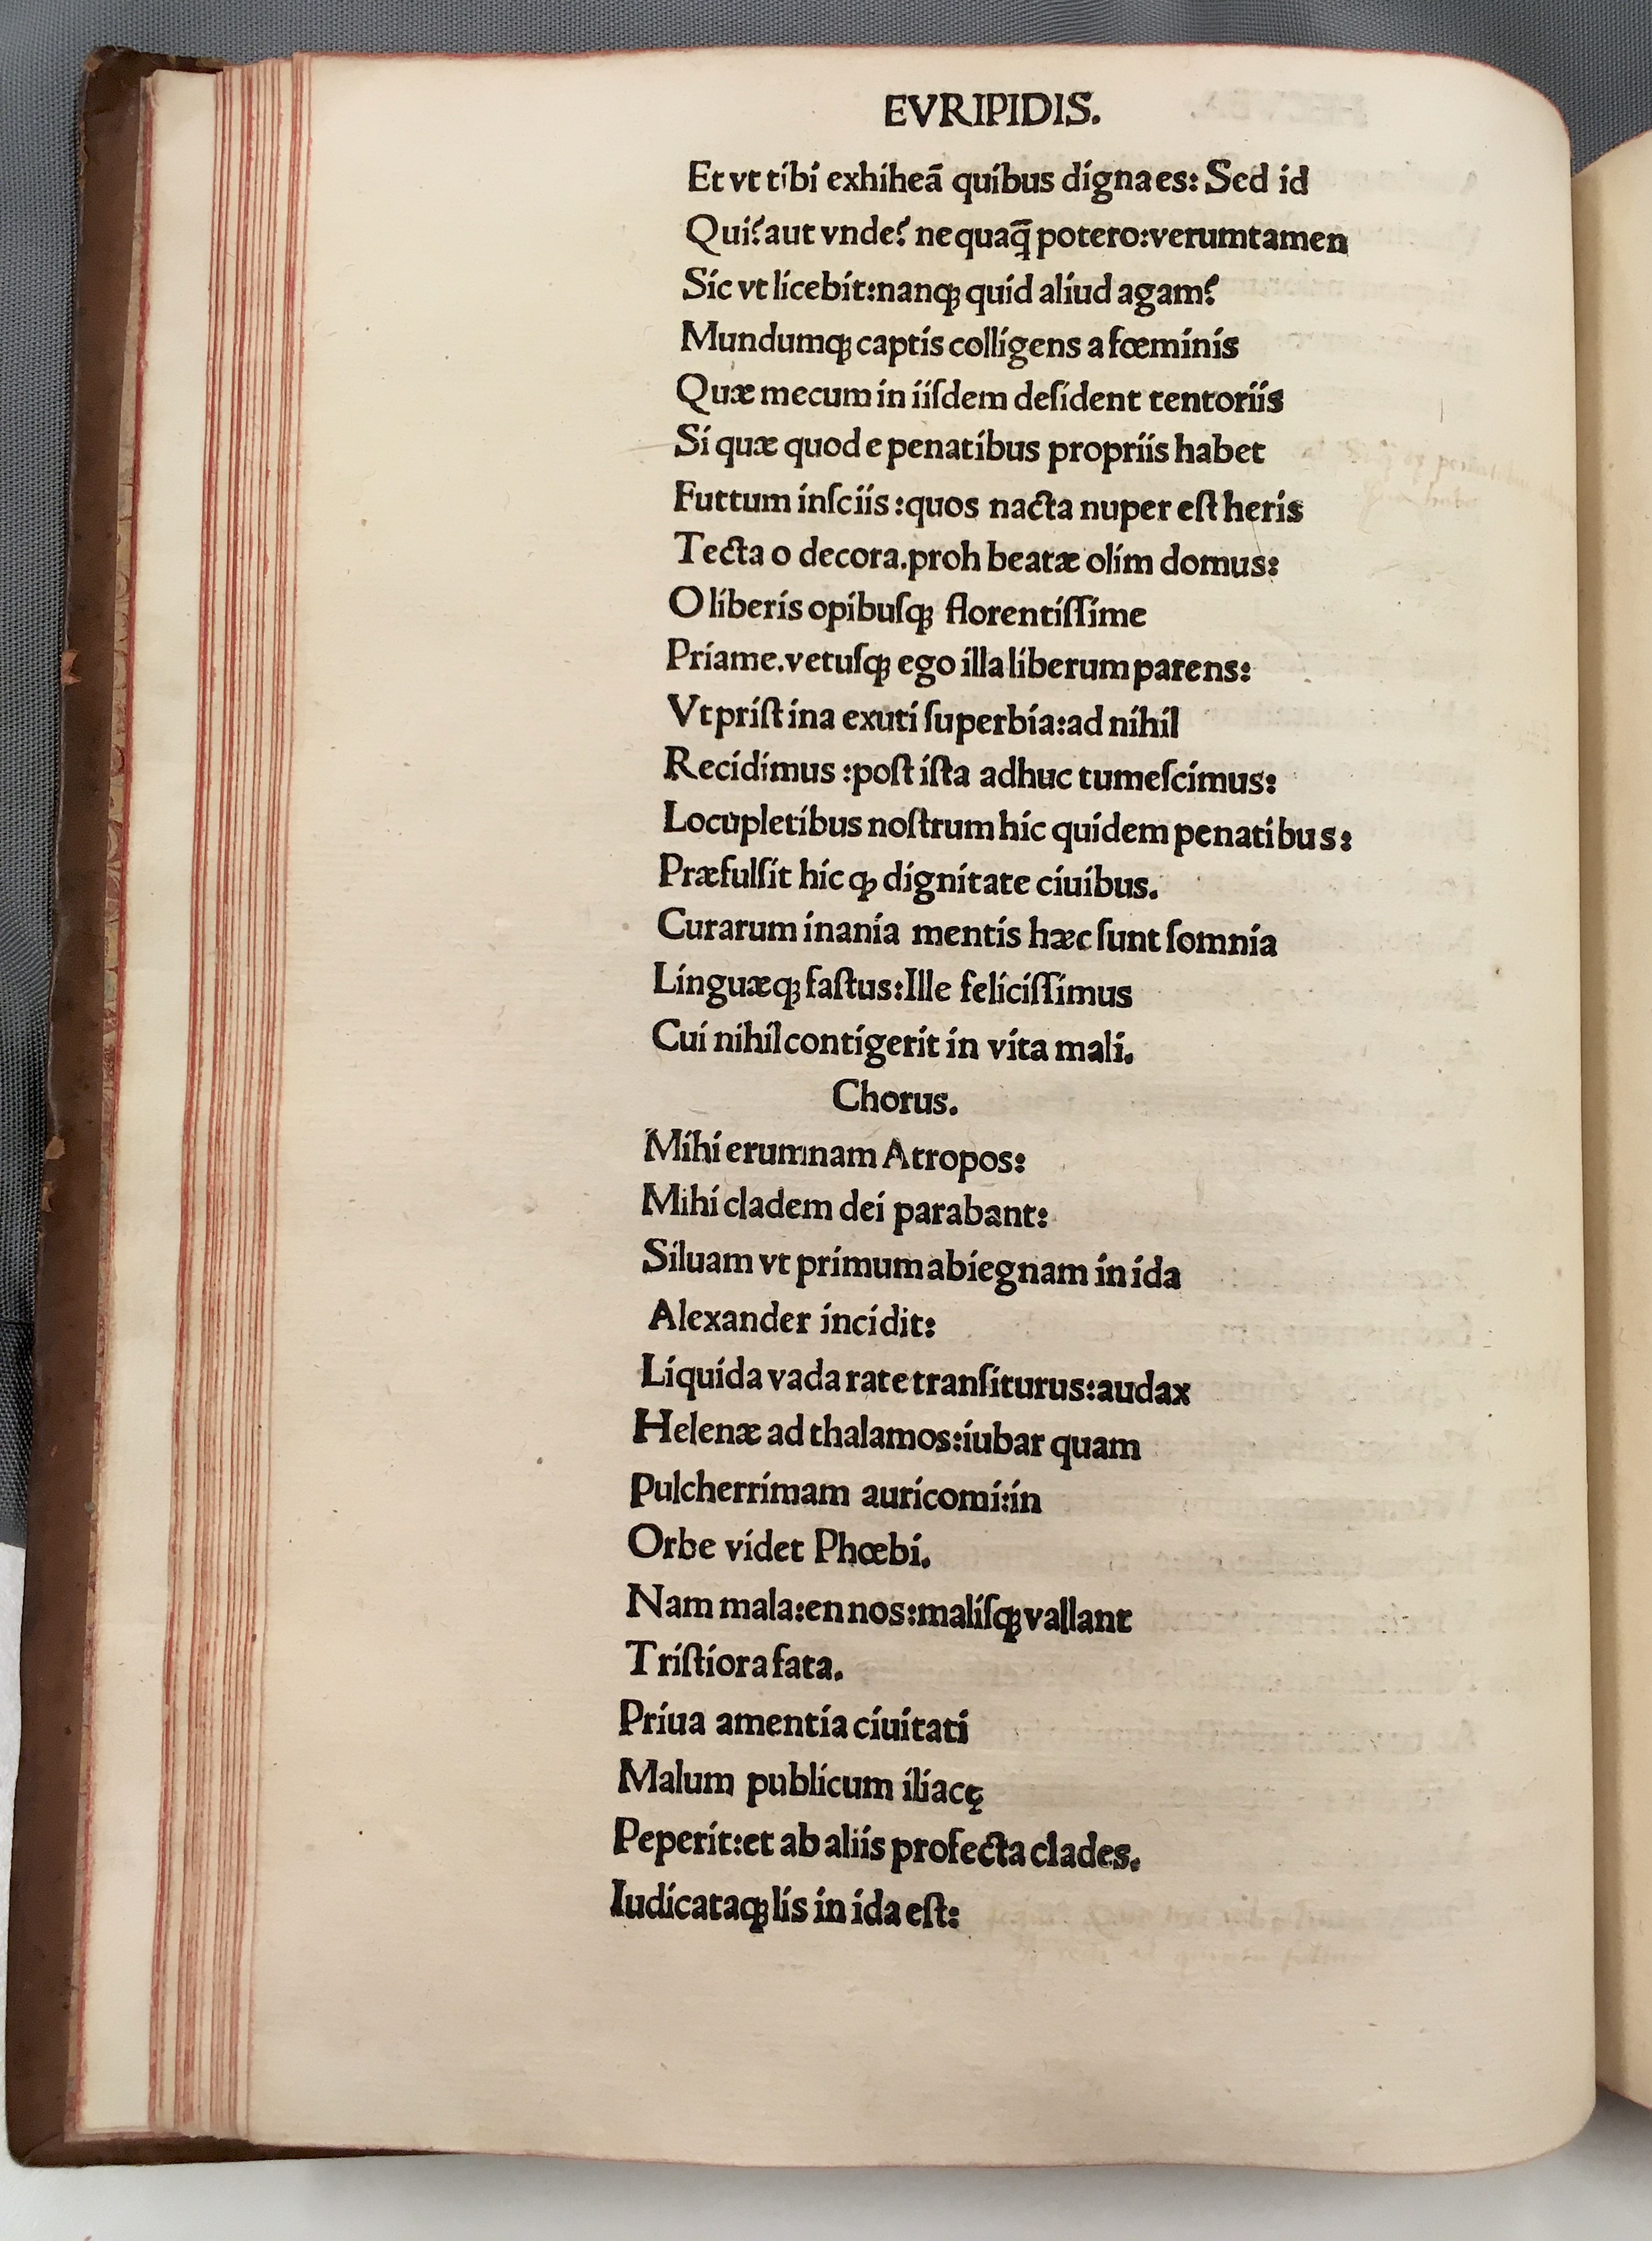 EVRIPIDIS.
Et vt tibi exhiheā quibus digna es: Sed id
Qui? aut vnde? nequaq̄ potero: verumtamen
Sic vt licebit: nanqꝫ quid aliud agam?
Mundumqꝫ captis colligens a fœminis
Quæ mecum in iiſdem deſident tentoriis
Si quæ quod e penatibus propriis habet
Futtum inſciis: quos nacta nuper eſt heris
Tecta o decora. proh beatæ olim domus:
O liberis opibuſqꝫ florentiſſime
Priame. vetuſqꝫ ego illa liberum parens:
Vt priſtina exuti ſuperbia: ad nihil
Recidimus: poſt iſta adhuc tumeſcimus:
Locupletibus noſtrum hic quidem penatibus:
Præfulſit hic qꝫ dignitate ciuibus.
Curarum inania mentis hæc ſunt ſomnia
Linguæqꝫ faſtus: Ille feliciſſimus
Cui nihil contigerit in vita mali.
Chorus.
Mihi erumnam Atropos:
Mihi cladem dei parabant:
Siluam vt primum abiegnam in ida
Alexander incidit:
Liquida vada rate tranſiturus: audax
Helenæ ad thalamos: iubar quam
Pulcherrimam auricomi: in
Orbe videt Phœbi.
Nam mala: en nos: maliſqꝫ vallant
Triſtiora fata.
Priua amentia ciuitati
Malum publicum iliacę
Peperit: et ab aliis profecta clades.
Iudicataqꝫ lis in ida eſt: